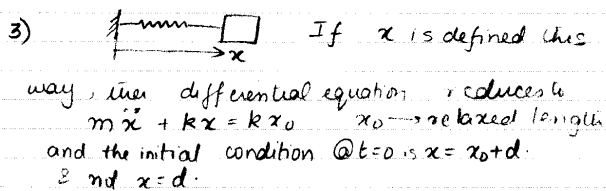 3) x If x is defined this
way, then differential equation reduces to
mẍ + kx = kx₀ x₀ → relaxed length
and the initial condition @t=0 is x = x₀+d.
& not x=d.